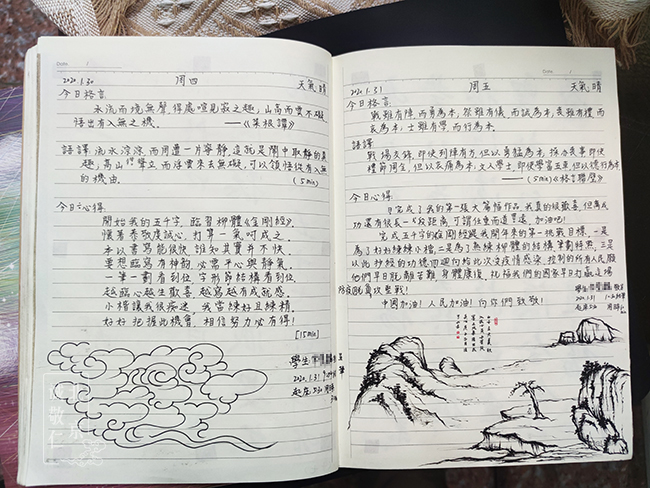 Date
2020.1.30 周四 天氣晴
今日格言
水流而境無聲,得處喧見寂之趣,山高而雲不礙,
悟出有入無之機. ——《菜根譚》
語譯 流水淙淙,而周遭一片寧靜,這就是鬧中取靜的真
趣,高山聳立,而浮雲來去無礙,可以領悟從有入無
的機由. (5min)
今日心得
開始我的五千字,臨習柳體《金剛經》
懷著恭敬虔誠心,打算一氣呵成之.
本以書寫能很快,誰知其實并不快
要想臨寫有神韻,必需平心與靜氣.
一筆一劃看到位,字形節結構看到位.
越臨心越生歡喜,越寫越有成就感.
小楷讓我很痴迷,我當練好且練精.
好好把握此機會,相信努力必有得!
[15min]
學生
2020.1.31
Date
2020.1.31 周五 天氣晴
今日格言
戰雖有陣,而勇為本,祭雖有儀,而誠為本,喪雖有禮,而
哀為本,士雖有學,而行為本.
語譯
戰場交鋒,即使列陣有方,但以勇猛為本,操办喪事即使
禮節周全,但以哀痛為本,文人學士,即使學富五車,但以德行為本
(5min)《格言聯璧》
今日心得
完成了我的第一張大篇幅作品,我真的很歡喜,但離成
功還有很長一段距离,可謂任重而道遠,加油吧!
完成五千字的金剛經是我開年來的第一挑戰目標,一是
為了好好練練小楷,二是為了熟練柳體的結構筆劃特點,三是
以此抄經的功德回向給此次受疫情感染,控制的所有人民願
他們早日脫離苦難,身體康復,祝福我們的國家早日打贏這場
防疫阻擊攻堅戰!
中國加油!人民加油!向你們致敬!
學生
2020.1.31